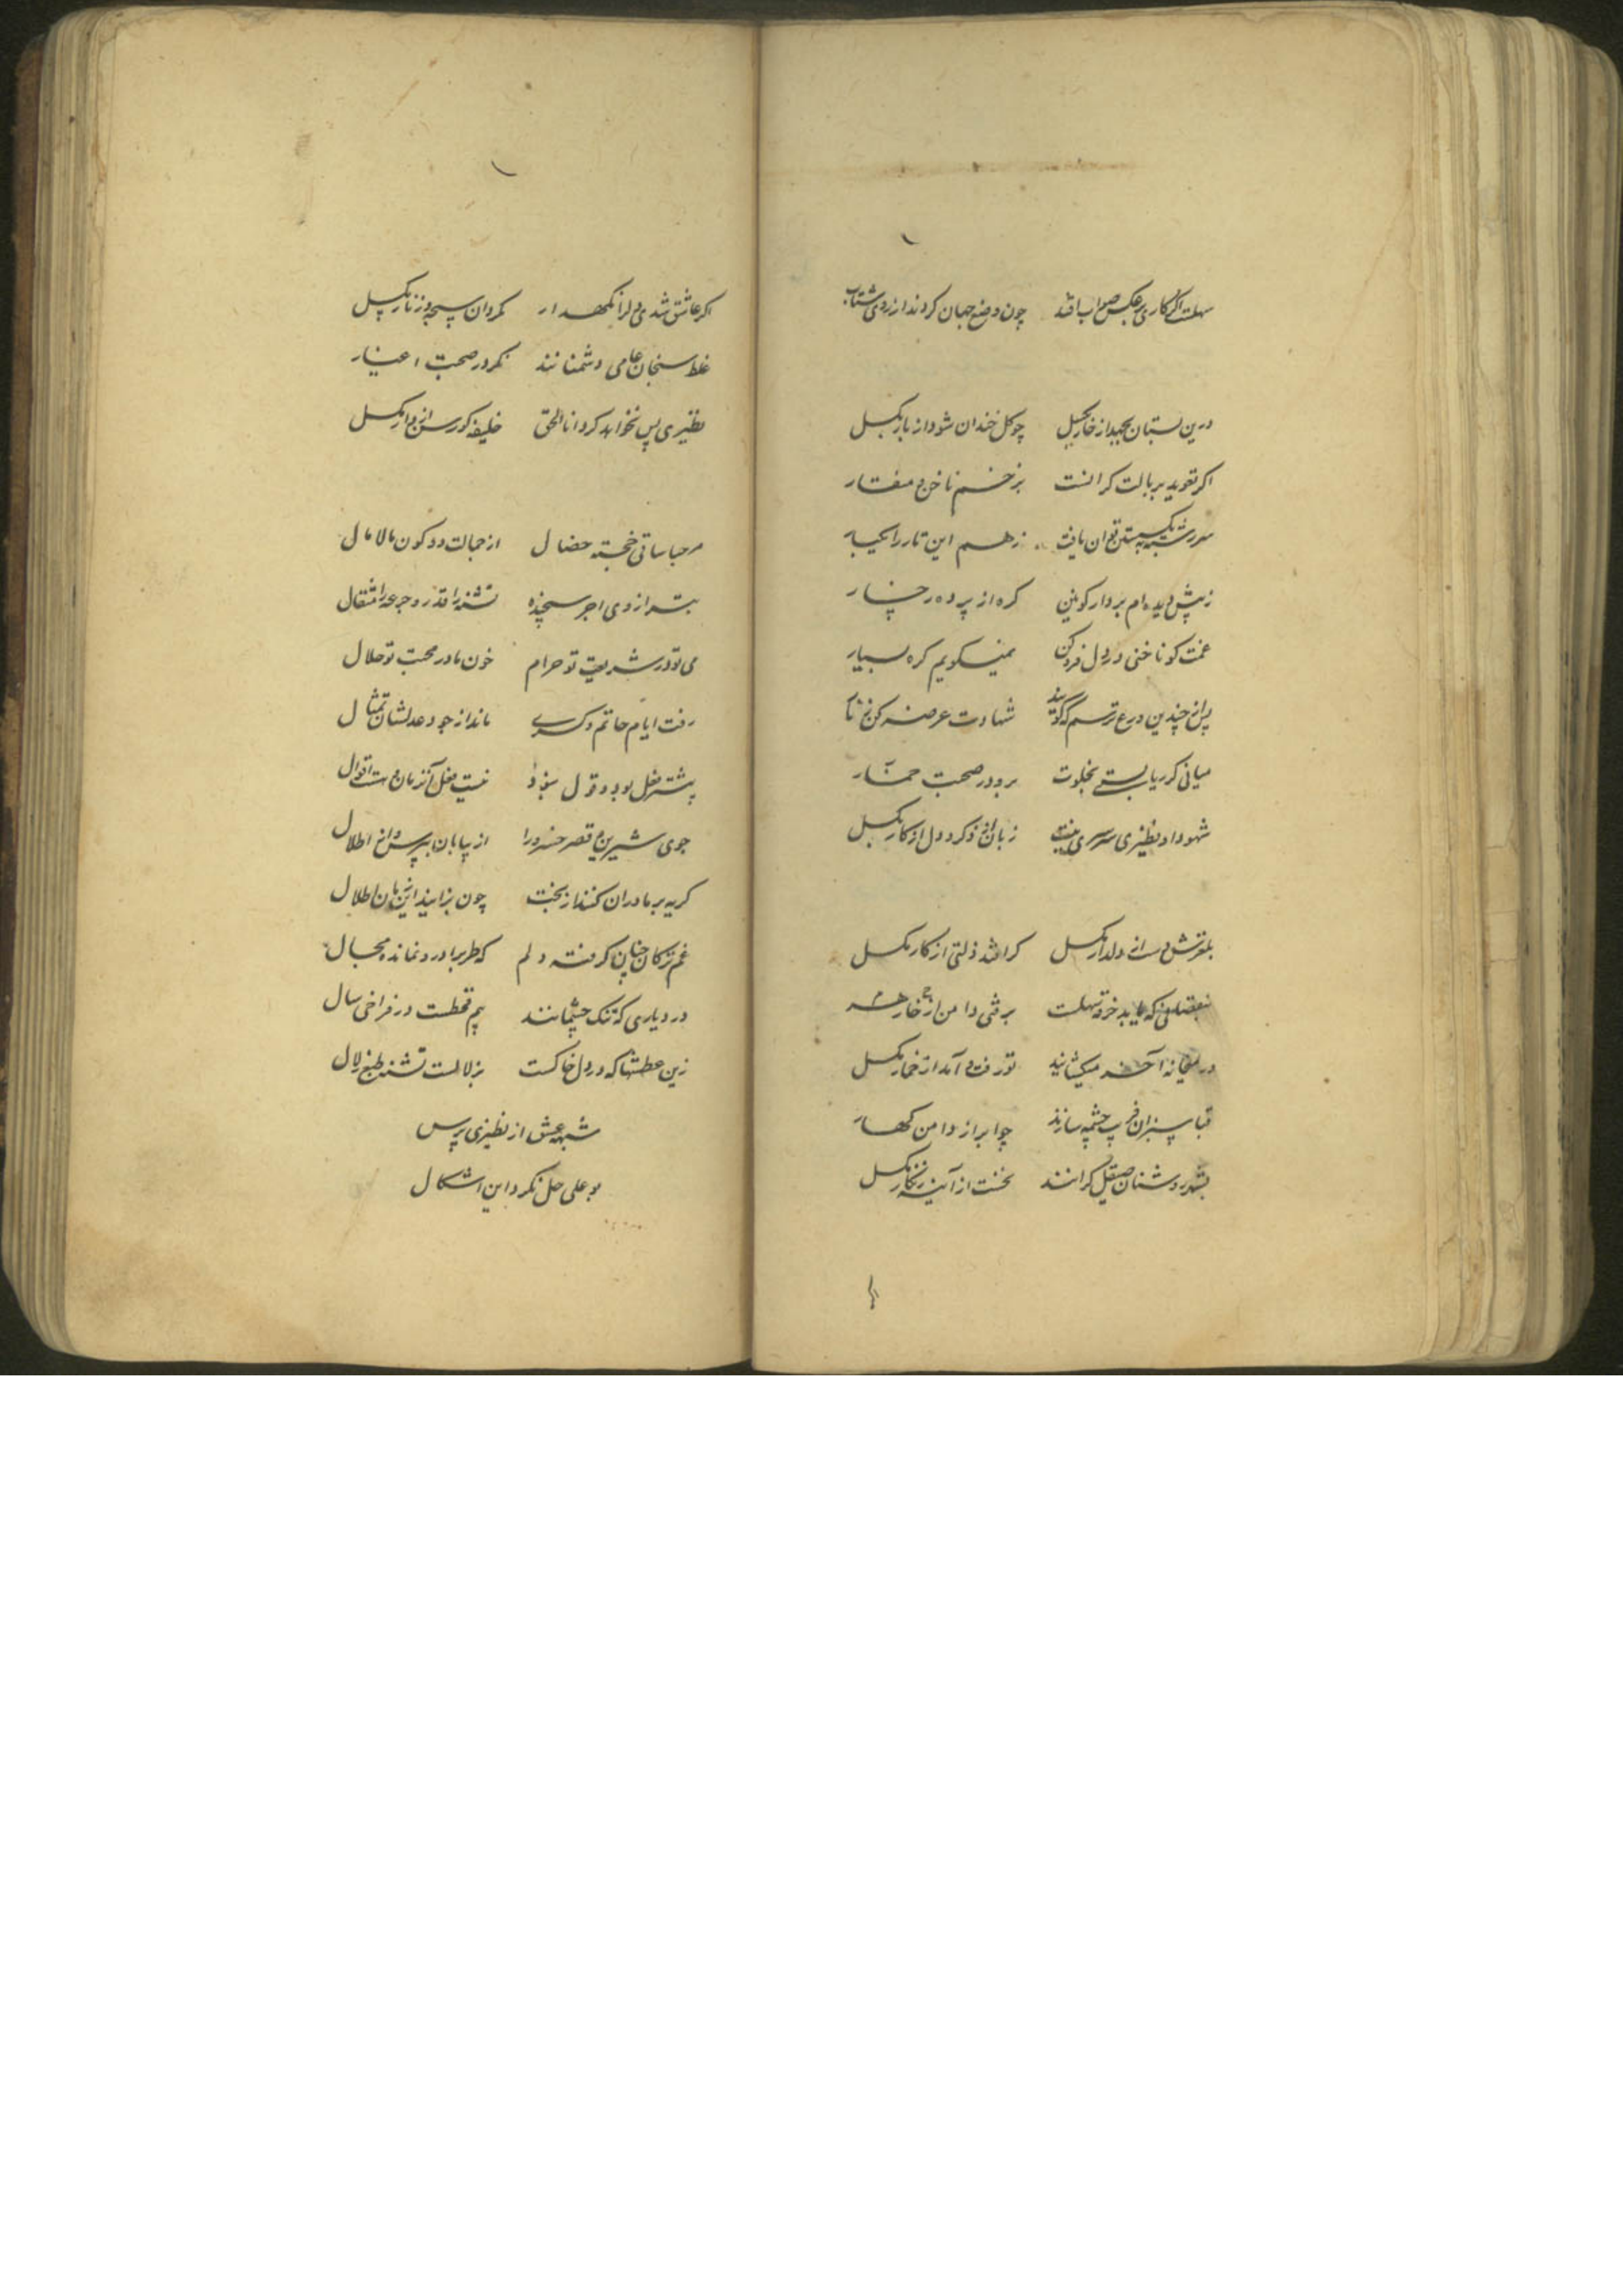 سهلست اگر کاری بر عکس صواب افتد چون وضع جهان کردند از روی شتاب
درین بستان بجهد از خار بگسل چو گل خندان شود از بار بگسل
اگر تعوید بر بالت گرانست بزخم ناخن و منقار
سر رشته به بگسستن توان یافت ز هم این تار را یکبار
ز پیش دیده ام بردار کونین گره از پرده رخسار
غمت کو ناخنی در دل فرو کن نمیگویم گره بسیار
پس از چندین ورع ترسم که گویند شهادت عرضه کن زنار
میانی کز ریا بستی بخلوت برو در صحبت خمار
شهود او نظیری سرسری نیست زبان از ذکر و دل از کار بگسل
بلغزش دست از دلدار مگسل گر افتد ذلتی از کار مگسل
که باید خرقه سهلست برفتی دامن از خار
در میخانه آخر میگشایند تو رفت و آمد از خمار مگسل
قبا سبزان فریب چشمه سازند چو ابر از دامن کهسار
بشهر روشنان صیقل گرانند نخست از آینه زنگار مگسل
اگر عاشق شدی دل را نگهدار مگردان سبحه و زنار بگسل
غلط سنجان عامی دشمنانند مگر در صحبت اغیار
نظیری پس نخواهد کرد انا الحق خلیفه گو رسن از دار بگسل
مرحبا ساقی خجسته خصال از جمالت دو کون مالامال
بترازوی اجر سنجیده تشنه را قدر و جرعه را مثقال
می تو در شریعت تو حرام خون ما در محبت تو حلال
رفت ایام حاتم و کسری ماند از جود و عدلشان تمثال
پیشتر فعل بود و قول نبود نیست فعل آن زمان و هست اقوال
جوی شیرین و قصر خسرو را از بیابان بپرس و از اطلال
گریه بر مادران کنند از بخت چون بزایند این زمان اطفال
غم ترکان چنان گرفته دلم که طرب را درو نمانده مجال
در دیاری که تنگ چشمانند بیم قحطست در فراخی سال
زین عطشها که در دل خاکست بزلالست تشنه طبع زلال
شبهه عشق از نظیری پرس
بو علی حل نکرد این اشکال